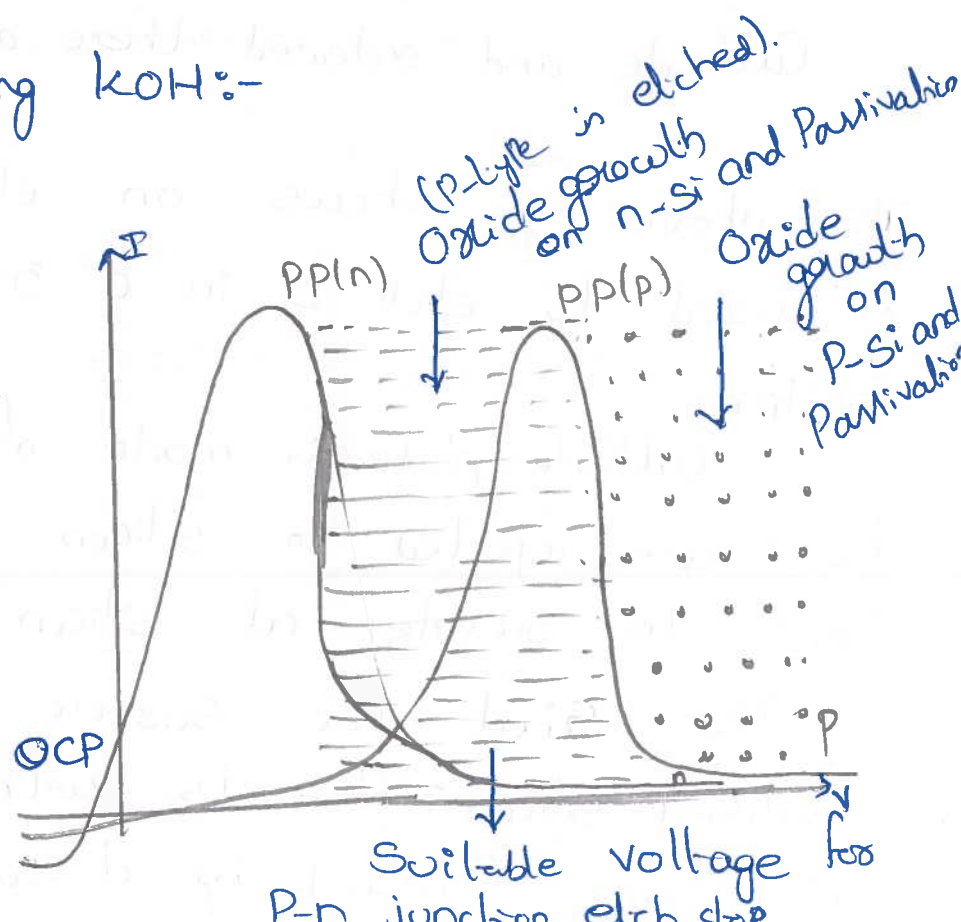 ng KOH:-
(P-type is etched).
Oxide growth
on n-Si and Passivation
Oxide
growth
on
P-Si and
Passivation
I
PP(n)
PP(p)
OCP
P
n
V
Suitable voltage for
P-n junction etch stop